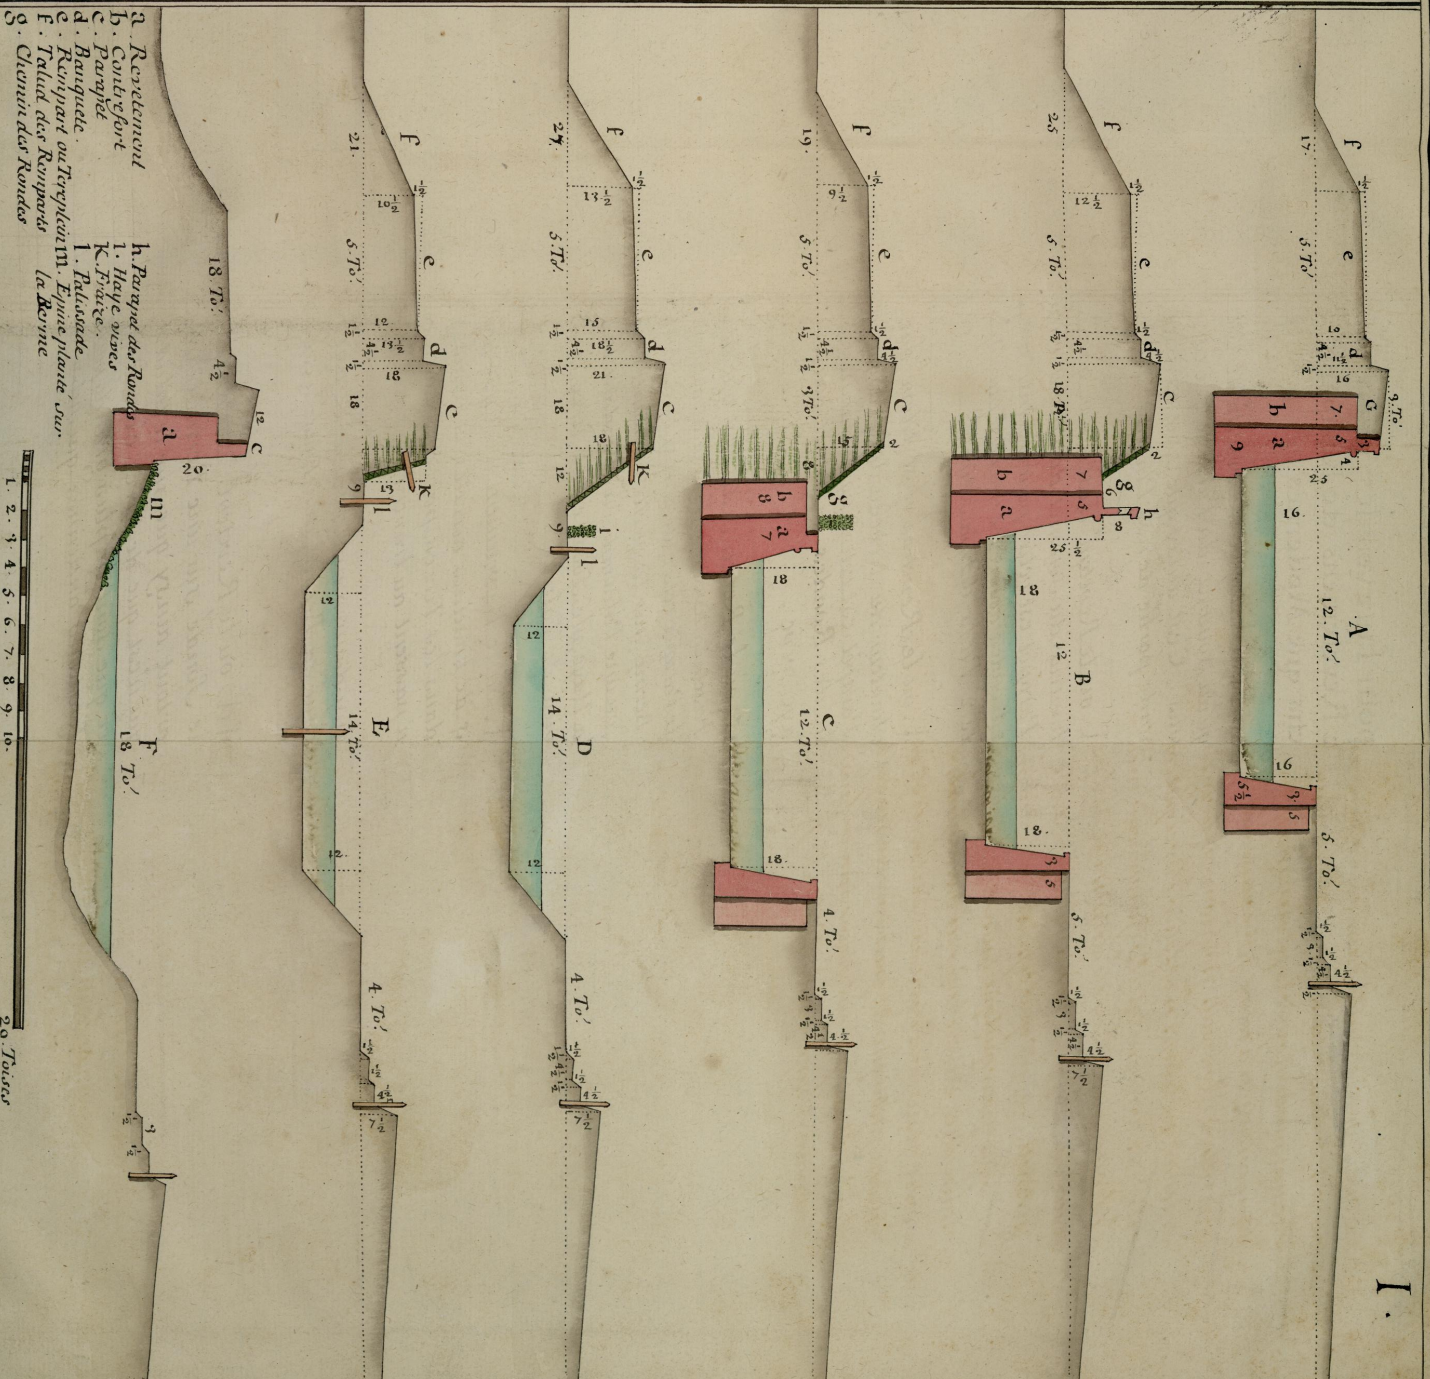 I.
A
f
e
d
G
17.
5. To!
10
4½
11½
16
3. To!
b
7.
a
5
9
3
4
25
16.
12. To!
16
5½
3.
5
5. To!
4½
B
f
e
d
c
25
12½
5. To!
4½
18 P.
2
g
6
h
8
b
7
a
5
25½
18
12
18.
3
5
5. To!
4½
7½
C
f
e
d
c
19.
9½
5. To!
4½
3 To!
15
2
8
g
b
8
a
7
18
12. To!
18.
4. To!
4½
D
f
e
d
c
K
i
l
27.
13½
5. To!
15
4½
18½
21.
18
18
12
9
12
14 To!
12
4. To!
4½
7½
E
f
e
d
c
k
l
21.
10½
5. To!
12
4½
13½
18
18
13
9
12
14. To!
12.
4. To!
4½
7½
F
18 To!
4½
12
c
a
20.
m
18 To!
3
a. Revetement
b. Contrefort
c. Parapet
d. Banquete.
e. Rempart ou Tereplein
f. Talud des Remparts
g. Chemin des Rondes
h. Parapet des Rondes
l. Haye vives
K. Fraize.
l. Palissade
m. Epine planté sur
la Berme
1. 2. 3. 4. 5. 6. 7. 8. 9. 10. 20. Toises